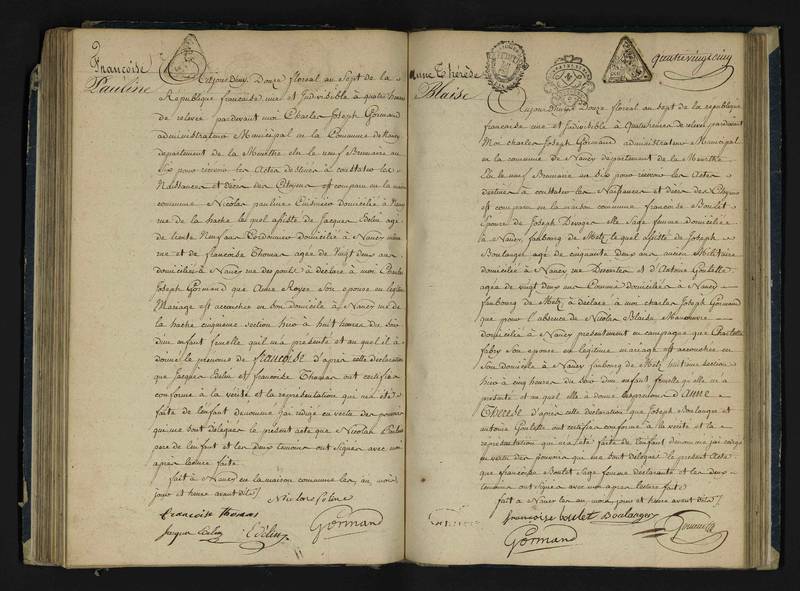 Françoise
Pauline
Aujourdhuy Douze floreal an Sept de la
Republique francaise une et Indivisible à quatre heures
de relevée pardevant moi Charles Joseph Gormand
administrateur Municipal en la Commune de Nancy
departement de la Meurthe élu le neuf Brumaire an
Six pour recevoir les Actes destinés à constater les
Naissances et décès des Citoyens est comparu en la maison
commune Nicolas pauline Cuisinier domicilié à Nancy
rue de la hache lequel assisté de Jacques Belin agé
de trente Neuf ans Cordonnier domicilié à Nancy même
rue et de francoise Thomas agée de Vingt deux ans
domiciliée à Nancy rue des ponts à déclaré à moi Charles
Joseph Gormand que Anne Royer Son epouse en legitime
Mariage est accouchée en son domicile à Nancy rue de
la hache cinquieme section hier à huit heures du Soir
d'un enfant femelle qu'il m'a présenté et auquel il à
donné le prénoms de francoise d'après cette déclaration
que Jacques Belin et francoise Thomas ont certifiée
conforme à la verité et la représentation qui m'a été
faite de l'enfant denommé j'ai rédigé en vertu des pouvoirs
qui me sont délégués le présent acte que Nicolas
pere de l'enfant et les deux temoins ont signés avec moi
après lecture faite.
fait à Nancy en la maison commune les an, mois
jour et heure avant dits
Nicolas
francoise thomas
Jacques Belin
Gormand
Anne Thérèse
Blaise
quatrevingtcinq
Aujourdhuy douze floreal an sept de la republique
francaise une et Indivisible à quatre heures de relevé pardevant
Moi charles Joseph Gormand administrateur Municipal
en la commune de Nancy departement de la Meurthe
Elu le neuf Brumaire an six pour recevoir les Actes
destinés à constater les Naissances et décès des Citoyens
est comparu en la maison commune francoise Boulet
Epouse de Joseph elle Sage femme domiciliée
à Nancy faubourg de Metz laquelle assistée de Joseph
Boulanger agé de cinquante deux ans ancien Militaire
domicilié à Nancy rue Descartes et d'Antoine
agé de vingt deux ans Commis domicilié à Nancy
faubourg de Metz à déclaré à moi charles Joseph Gormand
que pour l'absence de Nicolas Blaise Manoeuvre
domicilié à Nancy présentement en campagne que Charlotte
fabry son epouse en legitime mariage est accouchée en
Son domicile à Nancy faubourg de Metz huitieme section
hier à cinq heures du Soir d'un enfant femelle qu'elle m'a
présenté et auquel elle à donné les prénoms d'Anne
Therese d'après cette déclaration que Joseph Boulanger et
antoine ont certifiée conforme à la verité et la
représentation qui m'a été faite de l'enfant denommé j'ai rédigé
en vertu des pouvoirs qui me sont délégués le présent Acte
que francoise Boulet Sage femme déclarante et les deux
temoins ont signés avec moi après lecture faite
fait à Nancy les an, mois, jour et heure avant dits
francoise boulet Boulanger
Gormand